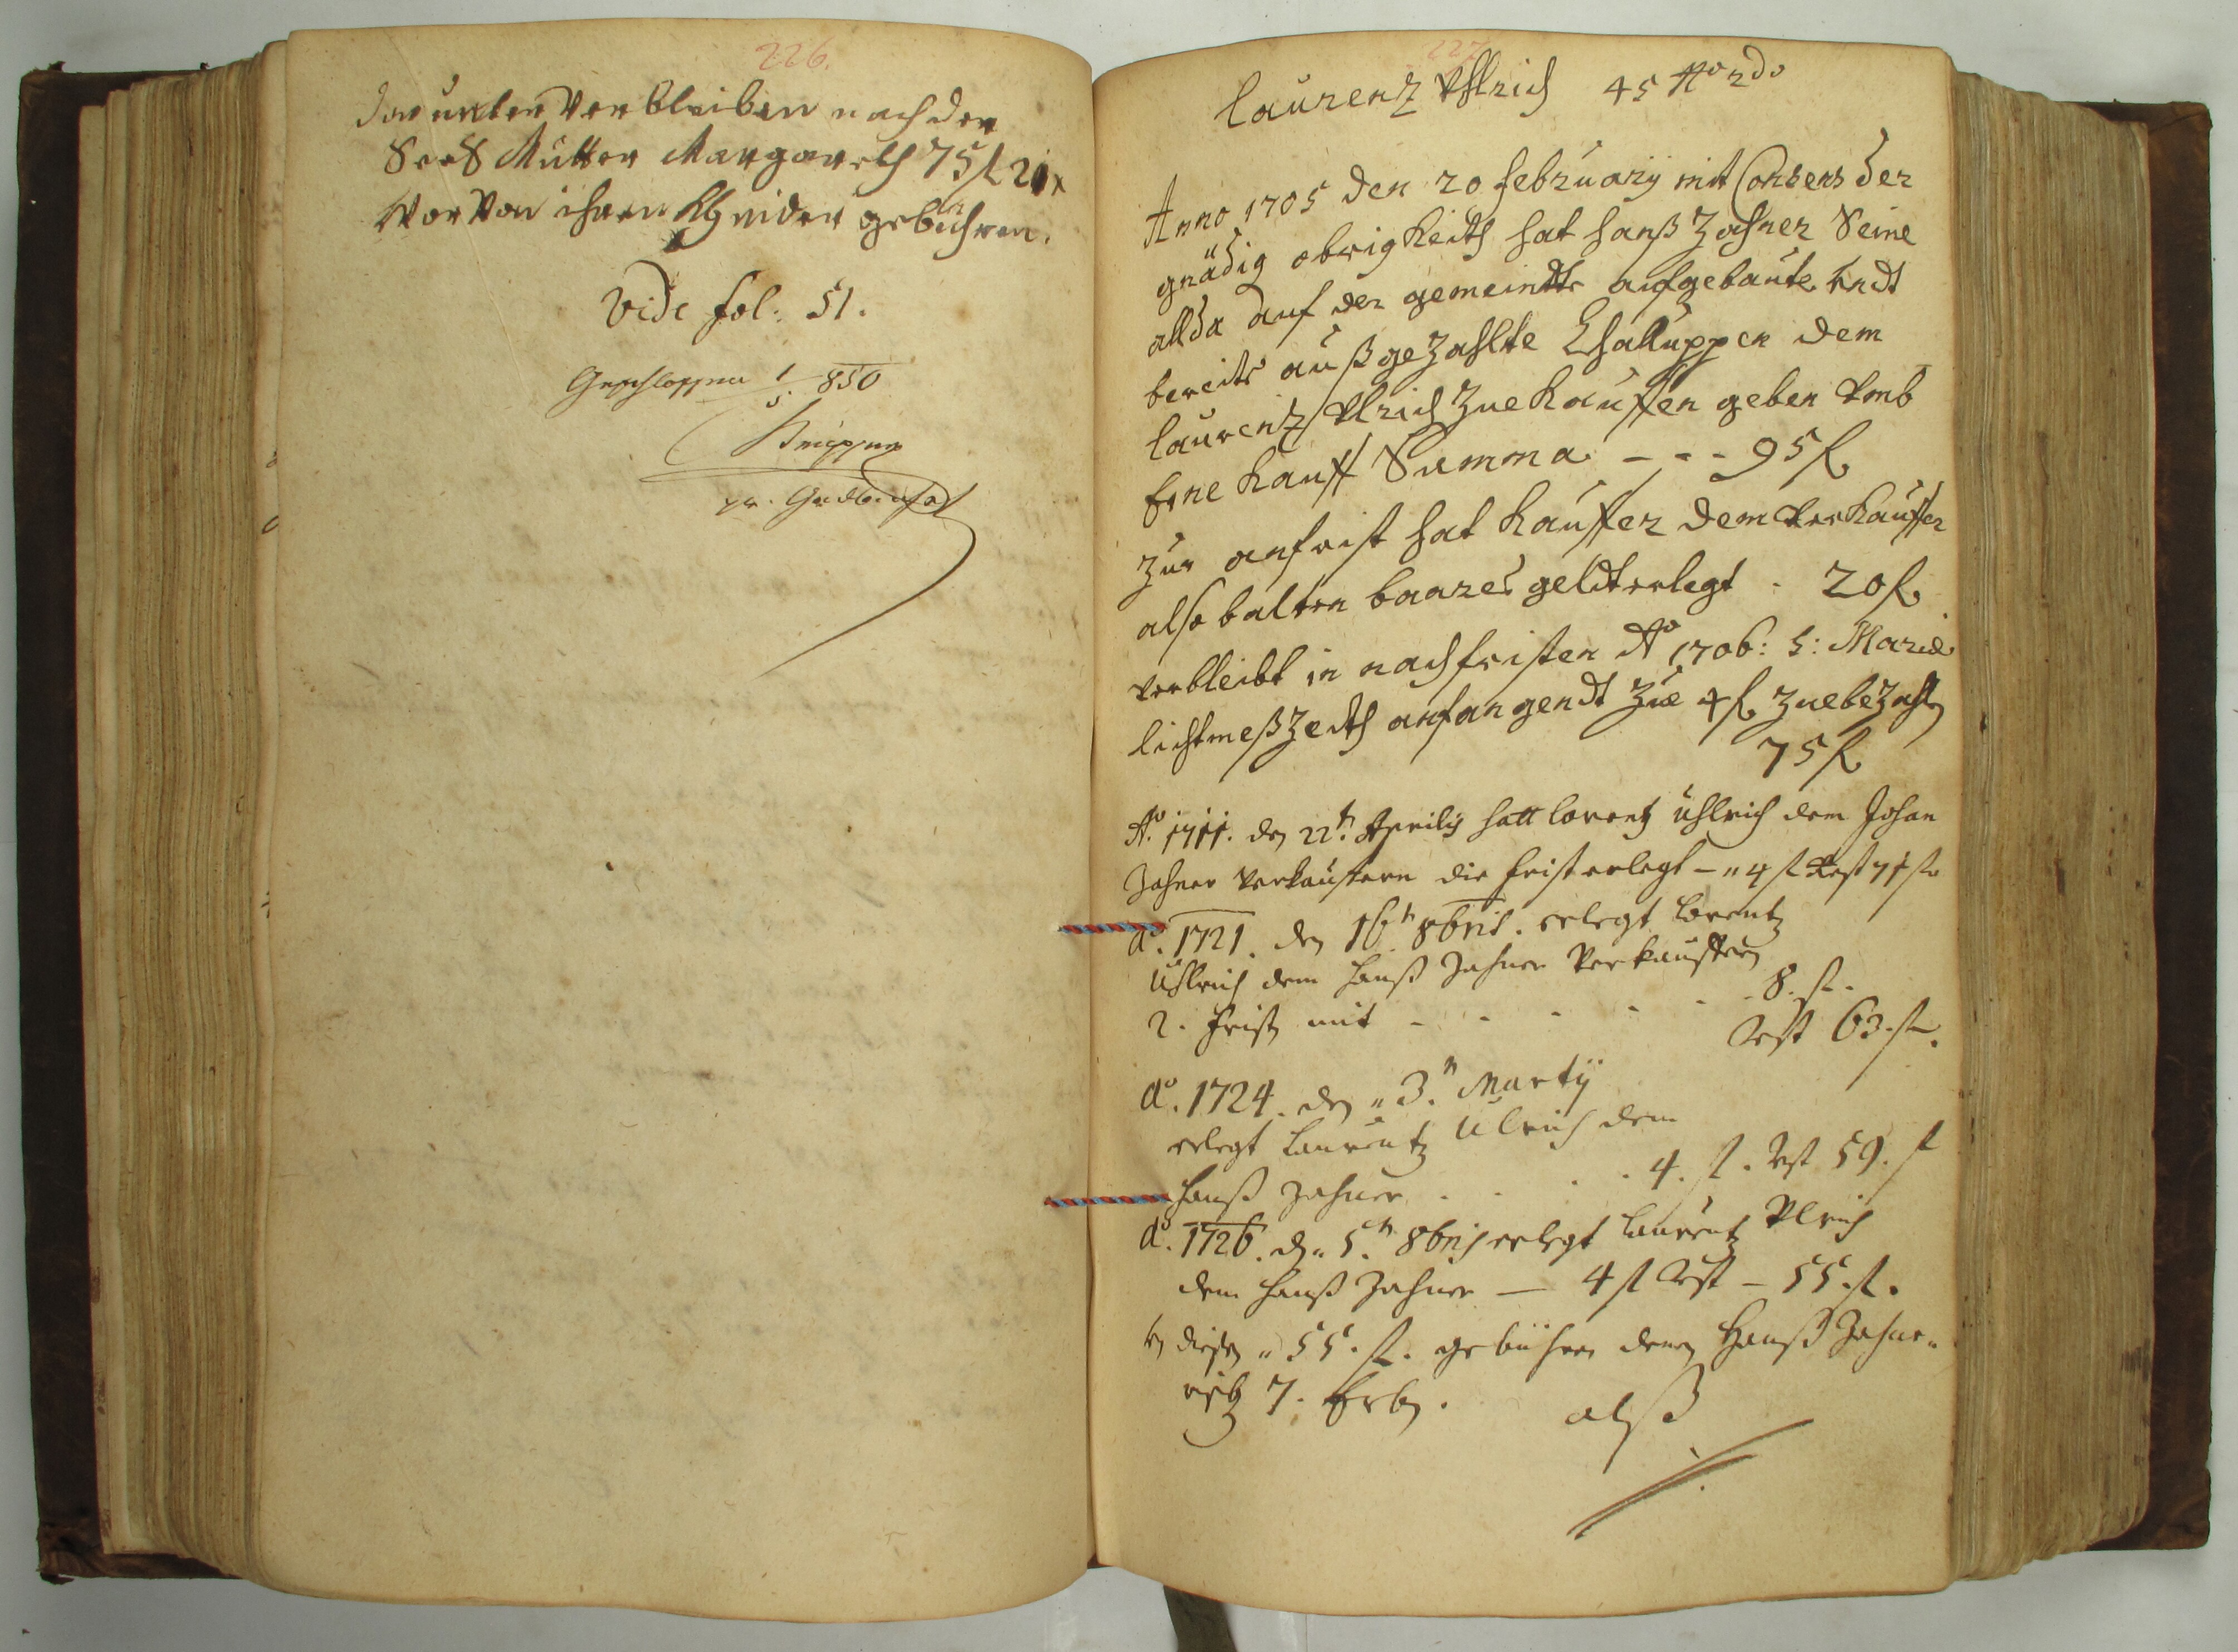 226.
Darunter verbleiben nach der
Seel Mutter Margareth 75 f 21 x
Wovon ihren Khinder gebühren.
Vide fol: 51.
Geschlossen 1/5 850
pr. Grundbuchsf
227.
Laurenz Uhlrich 45 Ao 2do
Anno 1705 den 20 february mit Consens der
gnädig obrigkeith hat Hanß Zahner Seine
allda auf der gemeindte aufgebaute Undt
bereits außgezahlte Chaluppen dem
Laurenz Ulrich zue kauffen geben Umb
Eine Kauff Summa - - - 95 f
Zur anfrist hat Kauffer dem Verkauffer
also balten baares geldt erlegt - 20 f
Verbleibt in nachfristen Ao 1706: S: Mariæ
lichtmeß Zeith anfangendt zue 4 f zuebezahlen
75 f
Ao. 1711. den 22t. Aprilis hatt Lorentz Uhlrich dem Johan
Zahner Verkauffern die frist erlegt - " 4 f Rest 71 f
Ao. 1721. den 16t 8bris. erlegt Lorentz
Uhlrich dem Hanß Zahner Verkauffern
2. fristen mit - - - - - - 8. f.
Rest 63. f.
Ao. 1724. den " 3.n Marty
erlegt Laurentz Ulrich dem
Hanß Zahner . . . . 4. f. Rest 59. f
Ao. 1726. d. " 5.n 8bris erlegt Laurentz Ulrich
dem Hanß Zahner — 4 f Rest - 55. f.
diesen " 55. f. gebühren denen Hanß Zahne-
7. Erben. alß